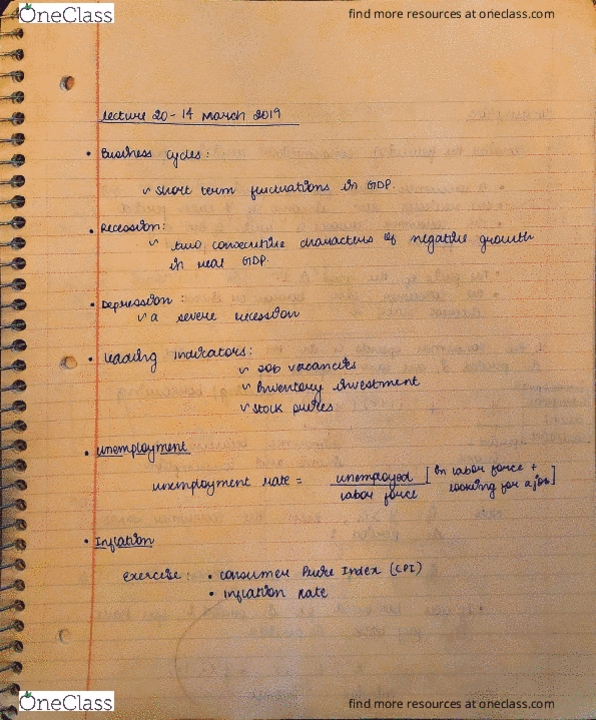 OneClass
find more resources at oneclass.com
Lecture 20 - 14 March 2019
• Business Cycles:
✓ short term fluctuations in GDP.
• Recession:
✓ two consecutive characters of negative growth
in real GDP.
• Depression
✓ a severe recession
• Leading indicators:
✓ Job vacancies
✓ Inventory investment
✓ stock prices
• Unemployment
unemployment rate = unemployed [in labor force +
labor force looking for a job]
• Inflation
Exercise: • Consumer Price Index (CPI)
• Inflation Rate
OneClass
find more resources at oneclass.com